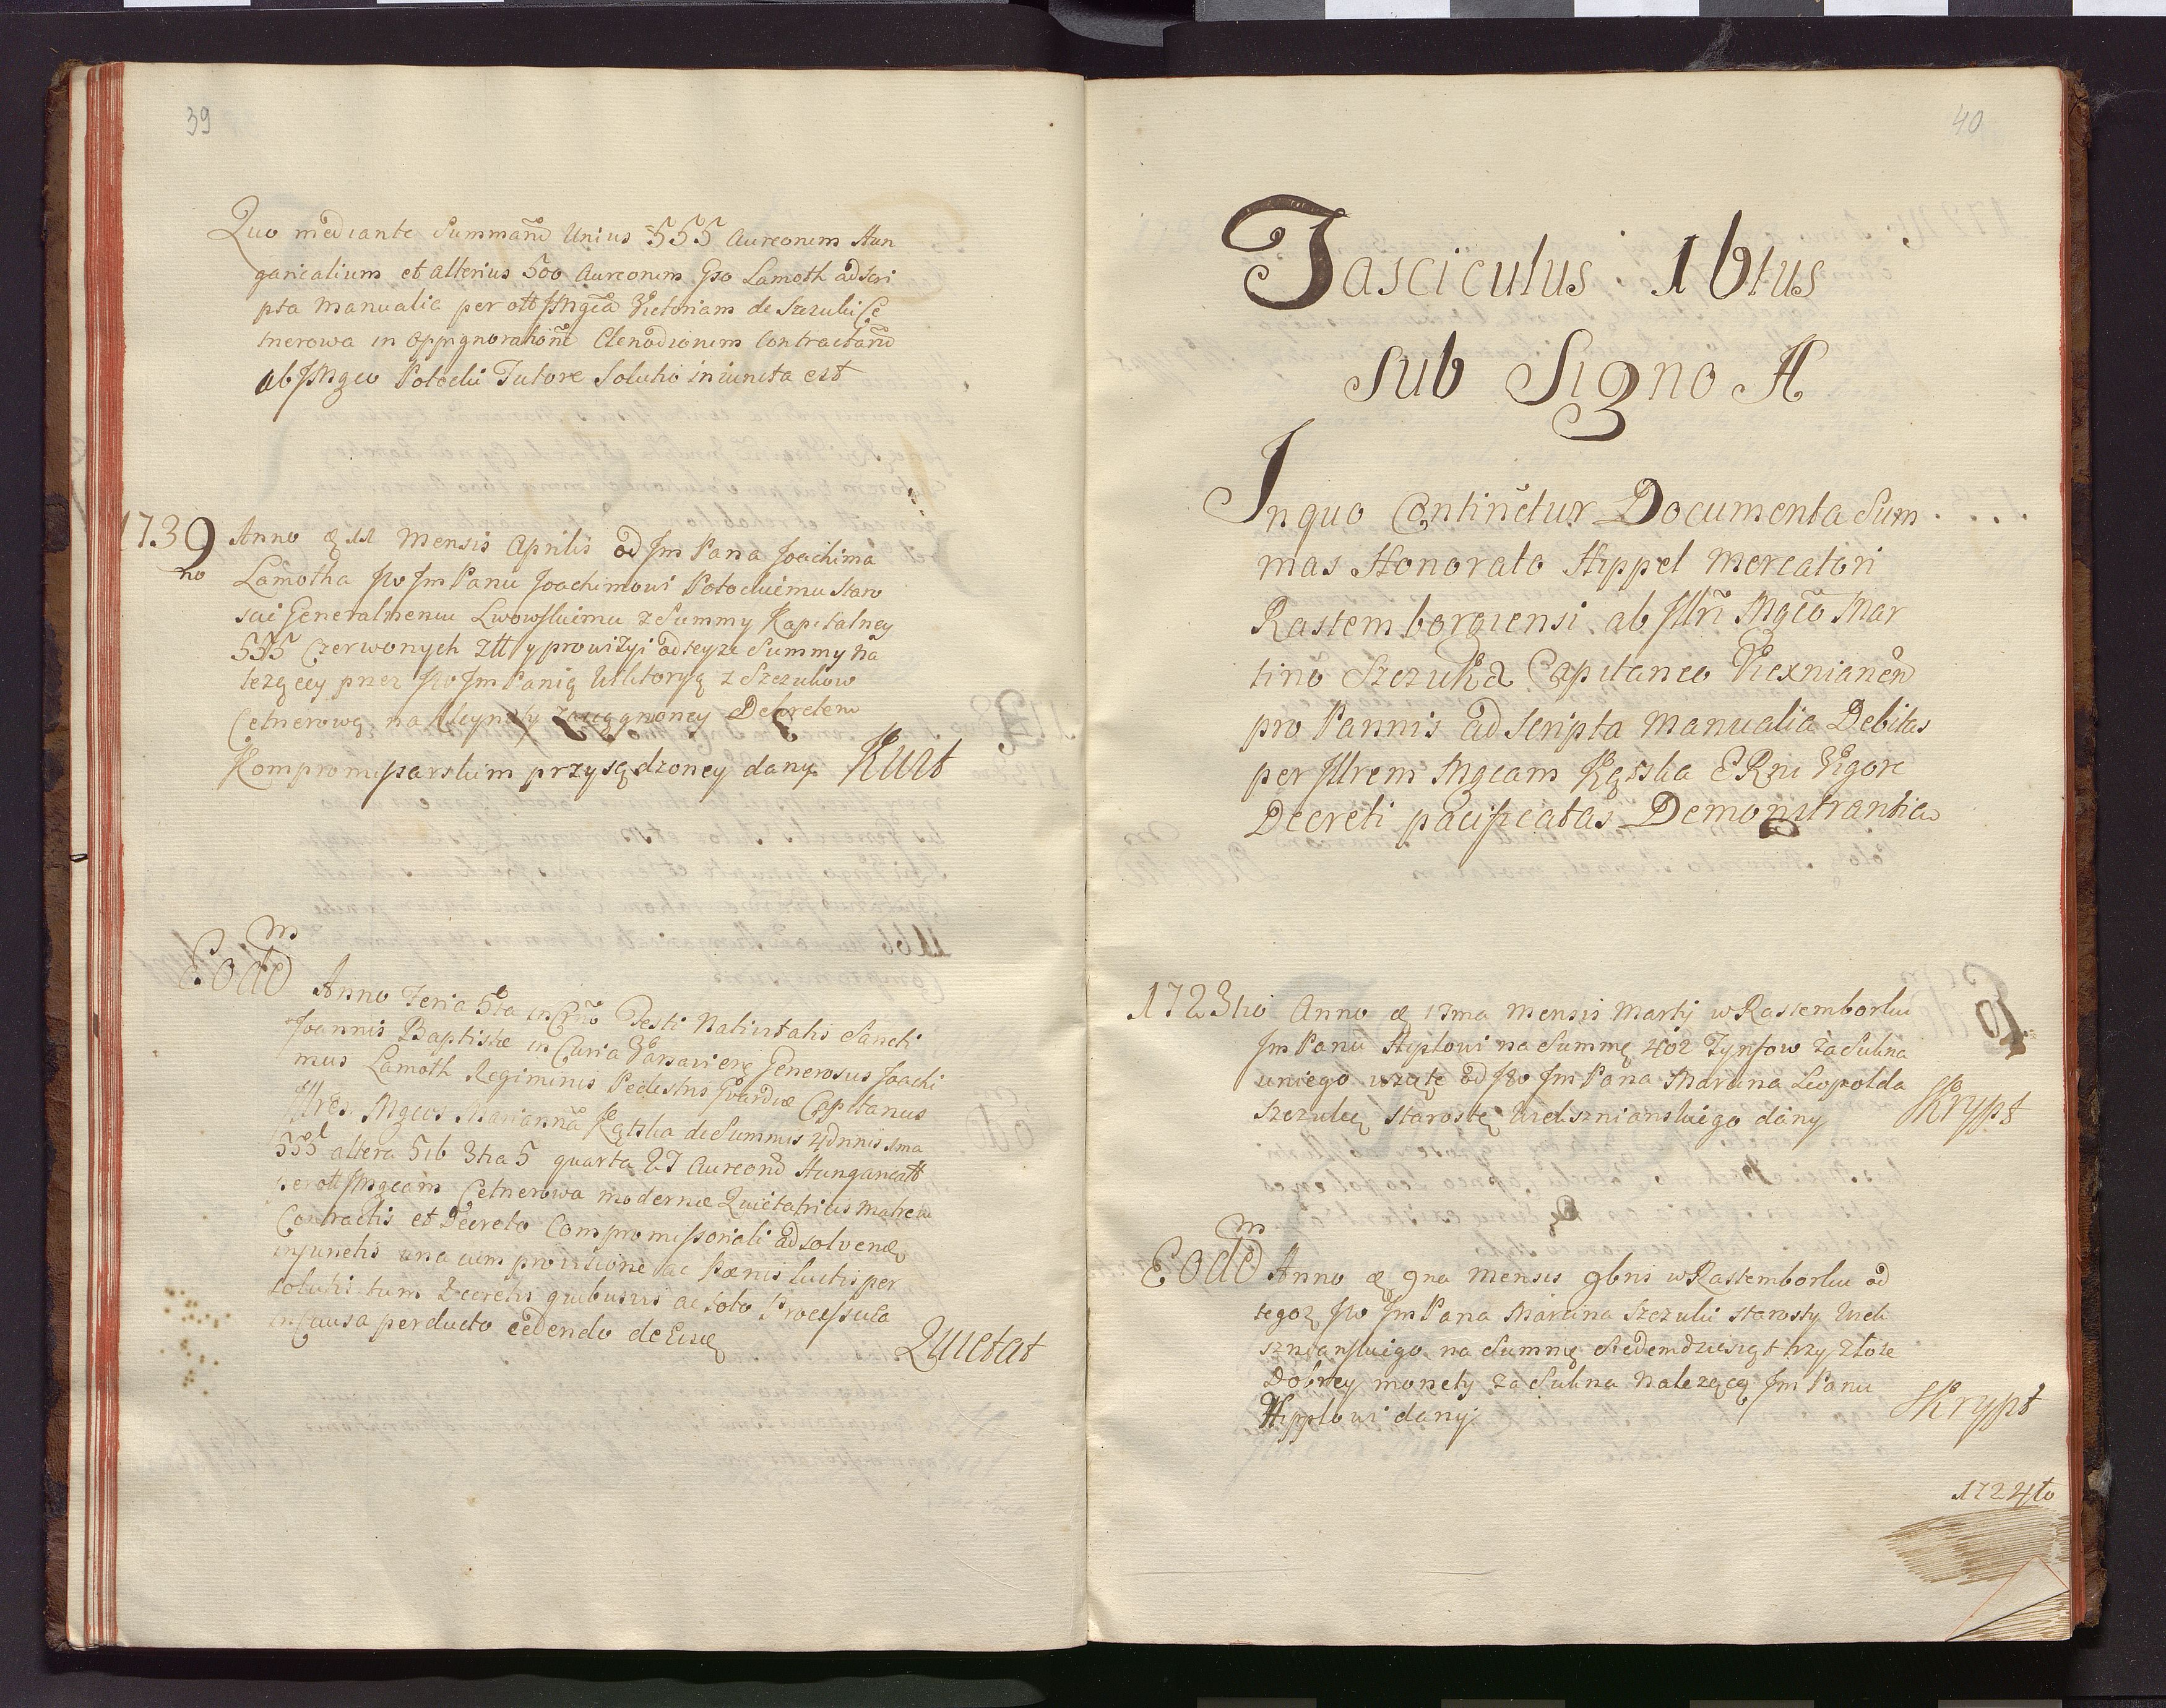 39
Quo mediante Summarũ Unius 555 Aureorum Hun
garicalium et alterius 500 Aureorum Gso Lamoth ad Scri
pta Manualia per
Victoriam de Szczuki Ce
tnerowa in oppignorationẽ Clenodiorum Contractarũ
ab JMgco Potocki Tutore Solutio iniuncta est
1739no Anno æ 11 Mensis Aprilis od Jm Pana Joachima
Lamotha Jw Jm Panu Joachimowi Potockiemu Staro
scie Generalnemu Lwowskiemu z Summy Kapitalney
555 Czerwonych Złł y prowizyi od teyze Summy na
lezącey przez Jw Jm Panią Wiktoryą z Szczukow
Cetnerową na Kleynoty zaciągnoney Dekretem
Kompromissarskim przysądzoney dany Kwit
Eodẽm Anno Feria 5ta in Crõ Festi Nativitatis Sancti
Joannis Baptistæ in Curia Varsavien Generosus Joachi
mus Lamoth Regiminis Pedestris Gvardiæ Capitanus
Jllrem Mgcos Mariannã Kątska de Summis 4 1ma
555 altera 516 3tia 5 quarta 27 Aureorũ Hungaricall
per JMgcam Cetnerowa modernæ Quietatricis Matrem
Contractis et Decreto Compromissoriali ad solvendũ
injunctis una cum provisione ac Pænis luctis per
solutis tum Decretis quibusvis ac toto Processu ea
in Causa perducto cedendo de Eisdẽ Quietat
40
Fasciculus 16tus
Sub Signo A
In quo Continẽtur Documenta Sum
mas Honorato Hippel Mercatori
Rastemborgiensi ab Jllri Mgco Mar
tino Szczuka Capitaneo Viexnianen
pro Pannis ad Scripta Manualia Debitas
per Jllrem Mgcam Kątska ERni Vigore
Decreti pacificatas Demonstrantia
1723tio Anno æ 17ma Mensis Martij w Rastemborku
Jm Panu Hiplowi na Summę 402 Tynfow za Sukna
u niego wzięte od Jw Jm Pana Marcina Leopolda
Szczukę Starostę Wieksznianskiego dany Skrypt
Eodẽm Anno æ 9na Mensis 9bris w Rastemborku od
tegoz Jw Jm Pana Marcina Szczuki Starosty Wiek
sznianskiego na Summę Siedemdziesiąt trzy Złote
Dobrey monety za Sukna Nalezącą Jm Panu
Hipplowi dany Skrypt
1724to